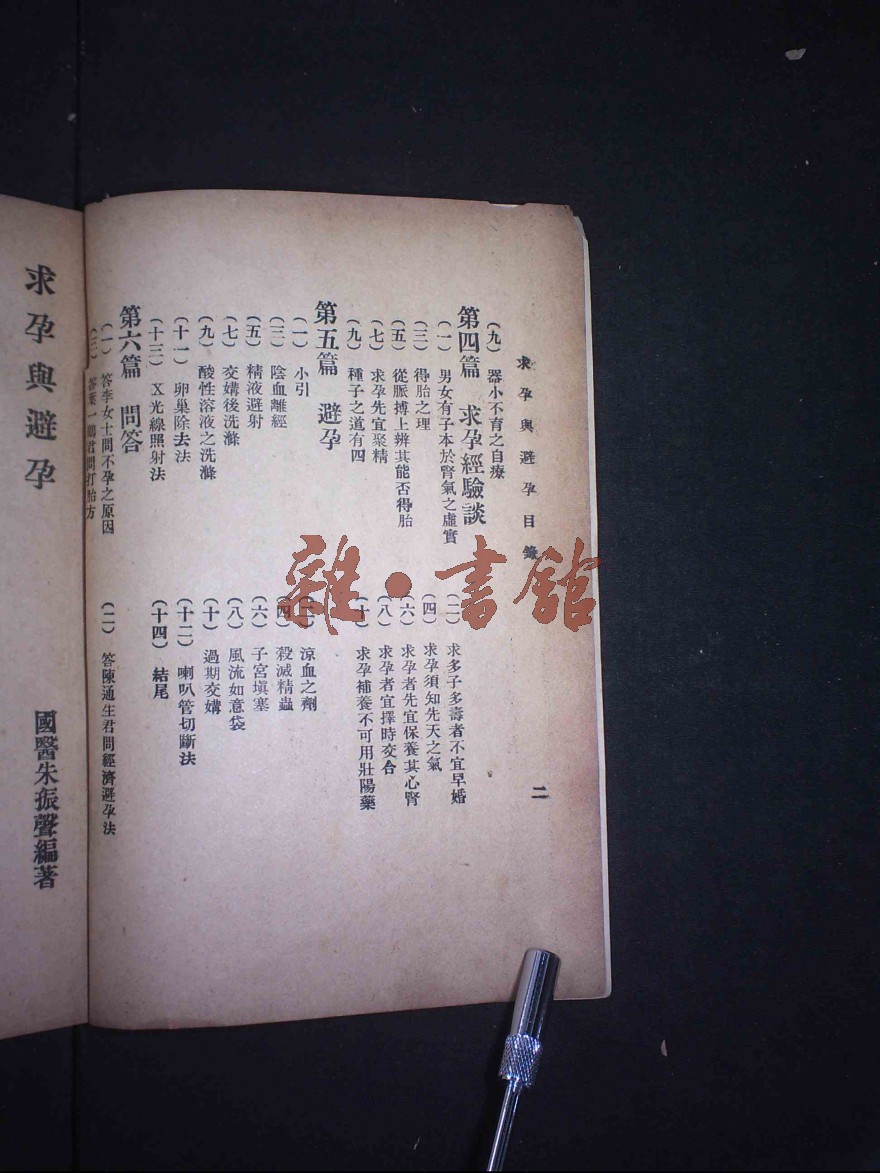 求孕與避孕目錄
二
(九) 器小不育之自療
第四篇 求孕經驗談
(一) 男女有子本於腎氣之虛實
(二) 求多子多壽者不宜早婚
(三) 得胎之理
(四) 求孕須知先天之氣
(五) 從脈搏上辨其能否得胎
(六) 求孕者先宜保養其心腎
(七) 求孕先宜聚精
(八) 求孕者宜擇時交合
(九) 種子之道有四
(十) 求孕補養不可用壯陽藥
第五篇 避孕
(一) 小引
(二) 涼血之劑
(三) 陰血離經
(四) 殺滅精蟲
(五) 精液避射
(六) 子宮塡塞
(七) 交媾後洗滌
(八) 風流如意袋
(九) 酸性溶液之洗滌
(十) 過期交媾
(十一) 卵巢除去法
(十二) 喇叭管切斷法
(十三) X光線照射法
(十四) 結尾
第六篇 問答
(一) 答李女士問不孕之原因
(二) 答陳通生君問經濟避孕法
(三) 答葉一鶴君問打胎方
求孕與避孕
國醫朱振聲編著
雜·書館